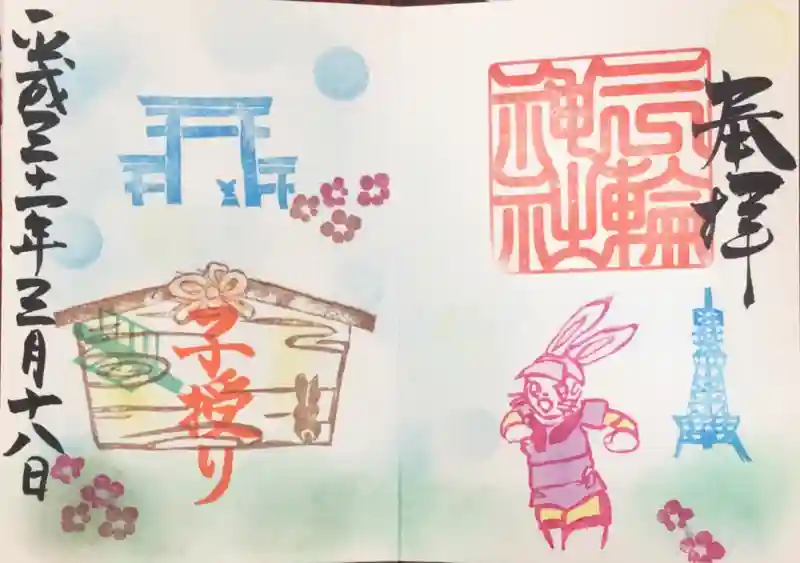 奉拝
三輪神社
子授り
平成三十一年三月十八日